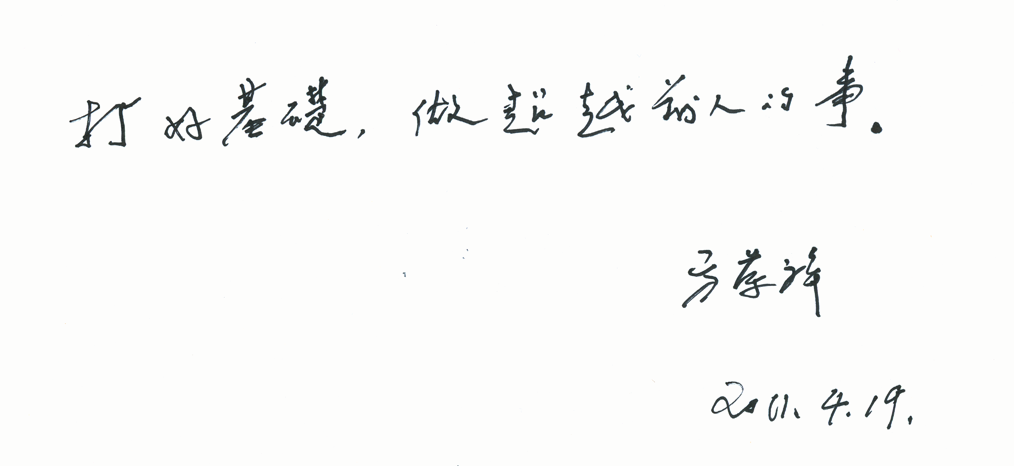 打好基礎，做超越前人的事。
2011.4.19.